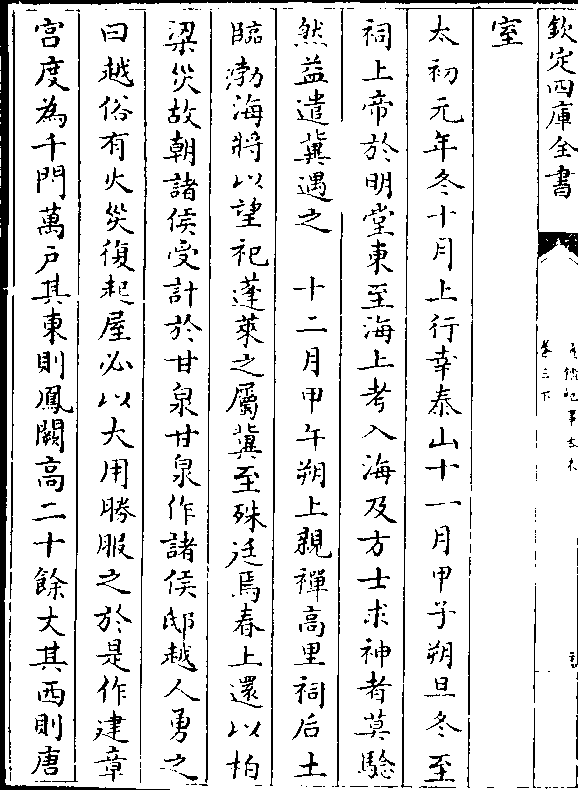 欽定四庫全書
卷三下
室
太初元年冬十月上行幸泰山十一月甲子朔旦冬至
祠上帝於明堂東至海上考入海及方士求神者莫驗
然益遣冀遇之　十二月甲午朔上親禪高里祠后土
臨渤海將以望祀蓬萊之屬冀至殊廷焉春上還以柏
梁災故朝諸侯受計於甘泉甘泉作諸侯邸越人勇之
曰越俗有火災復起屋必以大用勝服之於是作建章
宫度為千門萬户其東則鳳闕高二十餘丈其西則唐